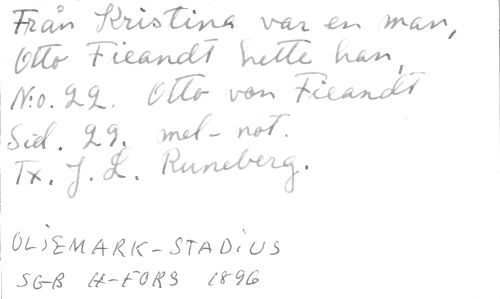 Från Kristina var en man,
Otto Fieandt hette han,
N:o. 22. Otto von Fieandt
Sid. 29. mel-not.
Tx. J. L. Runeberg.
OLSEMARK-STADIUS
SGB H-FORS 1896